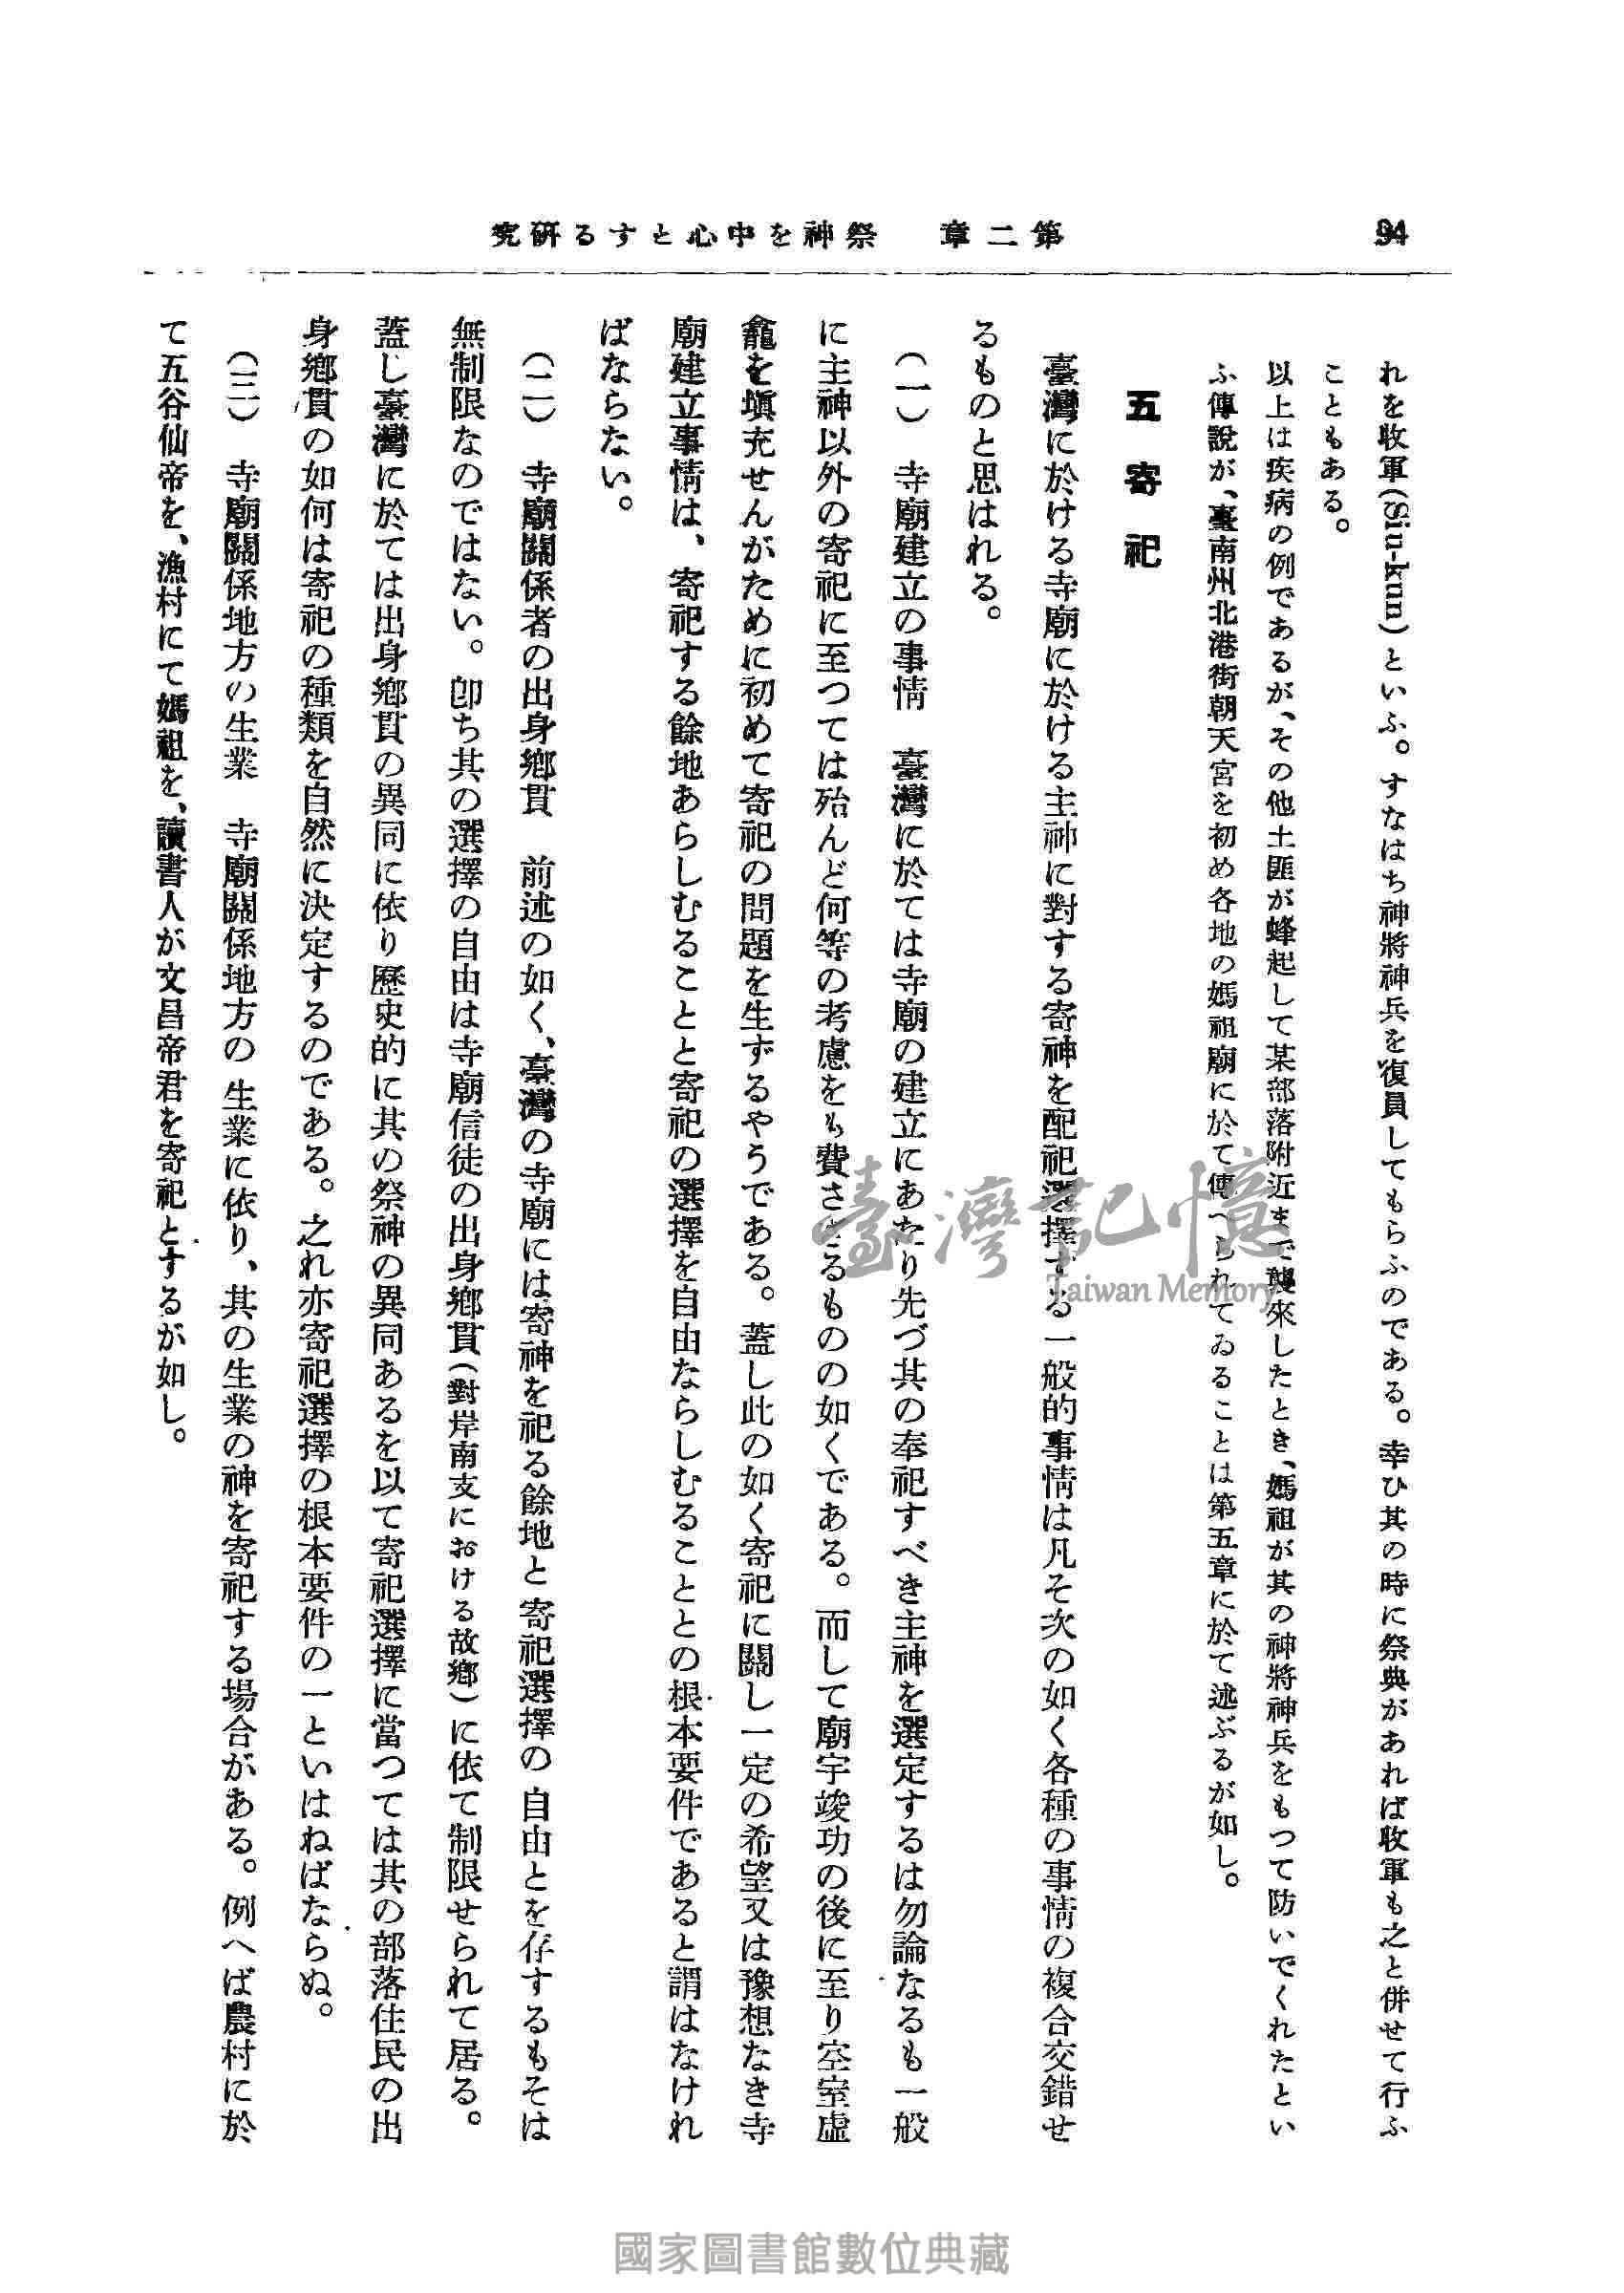 94
第二章　祭神を中心とする研究
れを收軍(Siu-kun)といふ。すなはち神將神兵を復員してもらふのである。幸ひ其の時に祭典があれば收軍も之と併せて行ふ
こともある。
以上は疾病の例であるが、その他土匪が蜂起して某部落附近まで襲來したとき、媽祖が其の神將神兵をもつて防いでくれたとい
ふ傳說が、臺南州北港街朝天宮を初め各地の媽祖廟に於て傳へられてゐることは第五章に於て述ぶるが如し。
五　寄　祀
臺灣に於ける寺廟に於ける主神に對する寄神を配祀選擇する一般的事情は凡そ次の如く各種の事情の複合交錯せ
るものと思はれる。
（一）　寺廟建立の事情　臺灣に於ては寺廟の建立にあたり先づ其の奉祀すべき主神を選定するは勿論なるも一般
に主神以外の寄祀に至つては殆んど何等の考慮をも費さざるものの如くである。而して廟宇竣功の後に至り空室虛
龕を塡充せんがために初めて寄祀の問題を生ずるやうである。蓋し此の如く寄祀に關し一定の希望又は豫想なき寺
廟建立事情は、寄祀する餘地あらしむることと寄祀の選擇を自由ならしむることとの根本要件であると謂はなけれ
ばならない。
（二）　寺廟關係者の出身鄕貫　前述の如く、臺灣の寺廟には寄神を祀る餘地と寄祀選擇の自由とを存するもそは
無制限なのではない。卽ち其の選擇の自由は寺廟信徒の出身鄕貫(對岸南支における故鄕)に依て制限せられて居る。
蓋し臺灣に於ては出身鄕貫の異同に依り歷史的に其の祭神の異同あるを以て寄祀選擇に當つては其の部落住民の出
身鄕貫の如何は寄祀の種類を自然に決定するのである。之れ亦寄祀選擇の根本要件の一といはねばならぬ。
（三）　寺廟關係地方の生業　寺廟關係地方の生業に依り、其の生業の神を寄祀する場合がある。例へば農村に於
て五谷仙帝を、漁村にて媽祖を、讀書人が文昌帝君を寄祀とするが如し。
臺灣記憶
Taiwan Memory
國家圖書館數位典藏